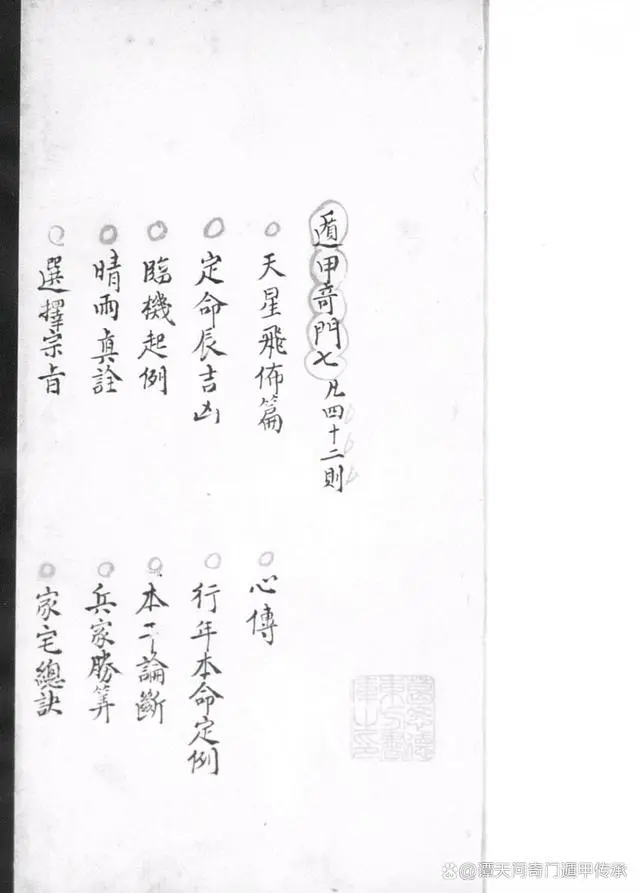 遁甲奇門七 凡四十二則
天星飛佈篇
心傳
定命辰吉凶
行年本命定例
臨機起例
本干論斷
晴雨真詮
兵家勝筭
選擇宗旨
家宅總訣
谭天河奇门遁甲传承